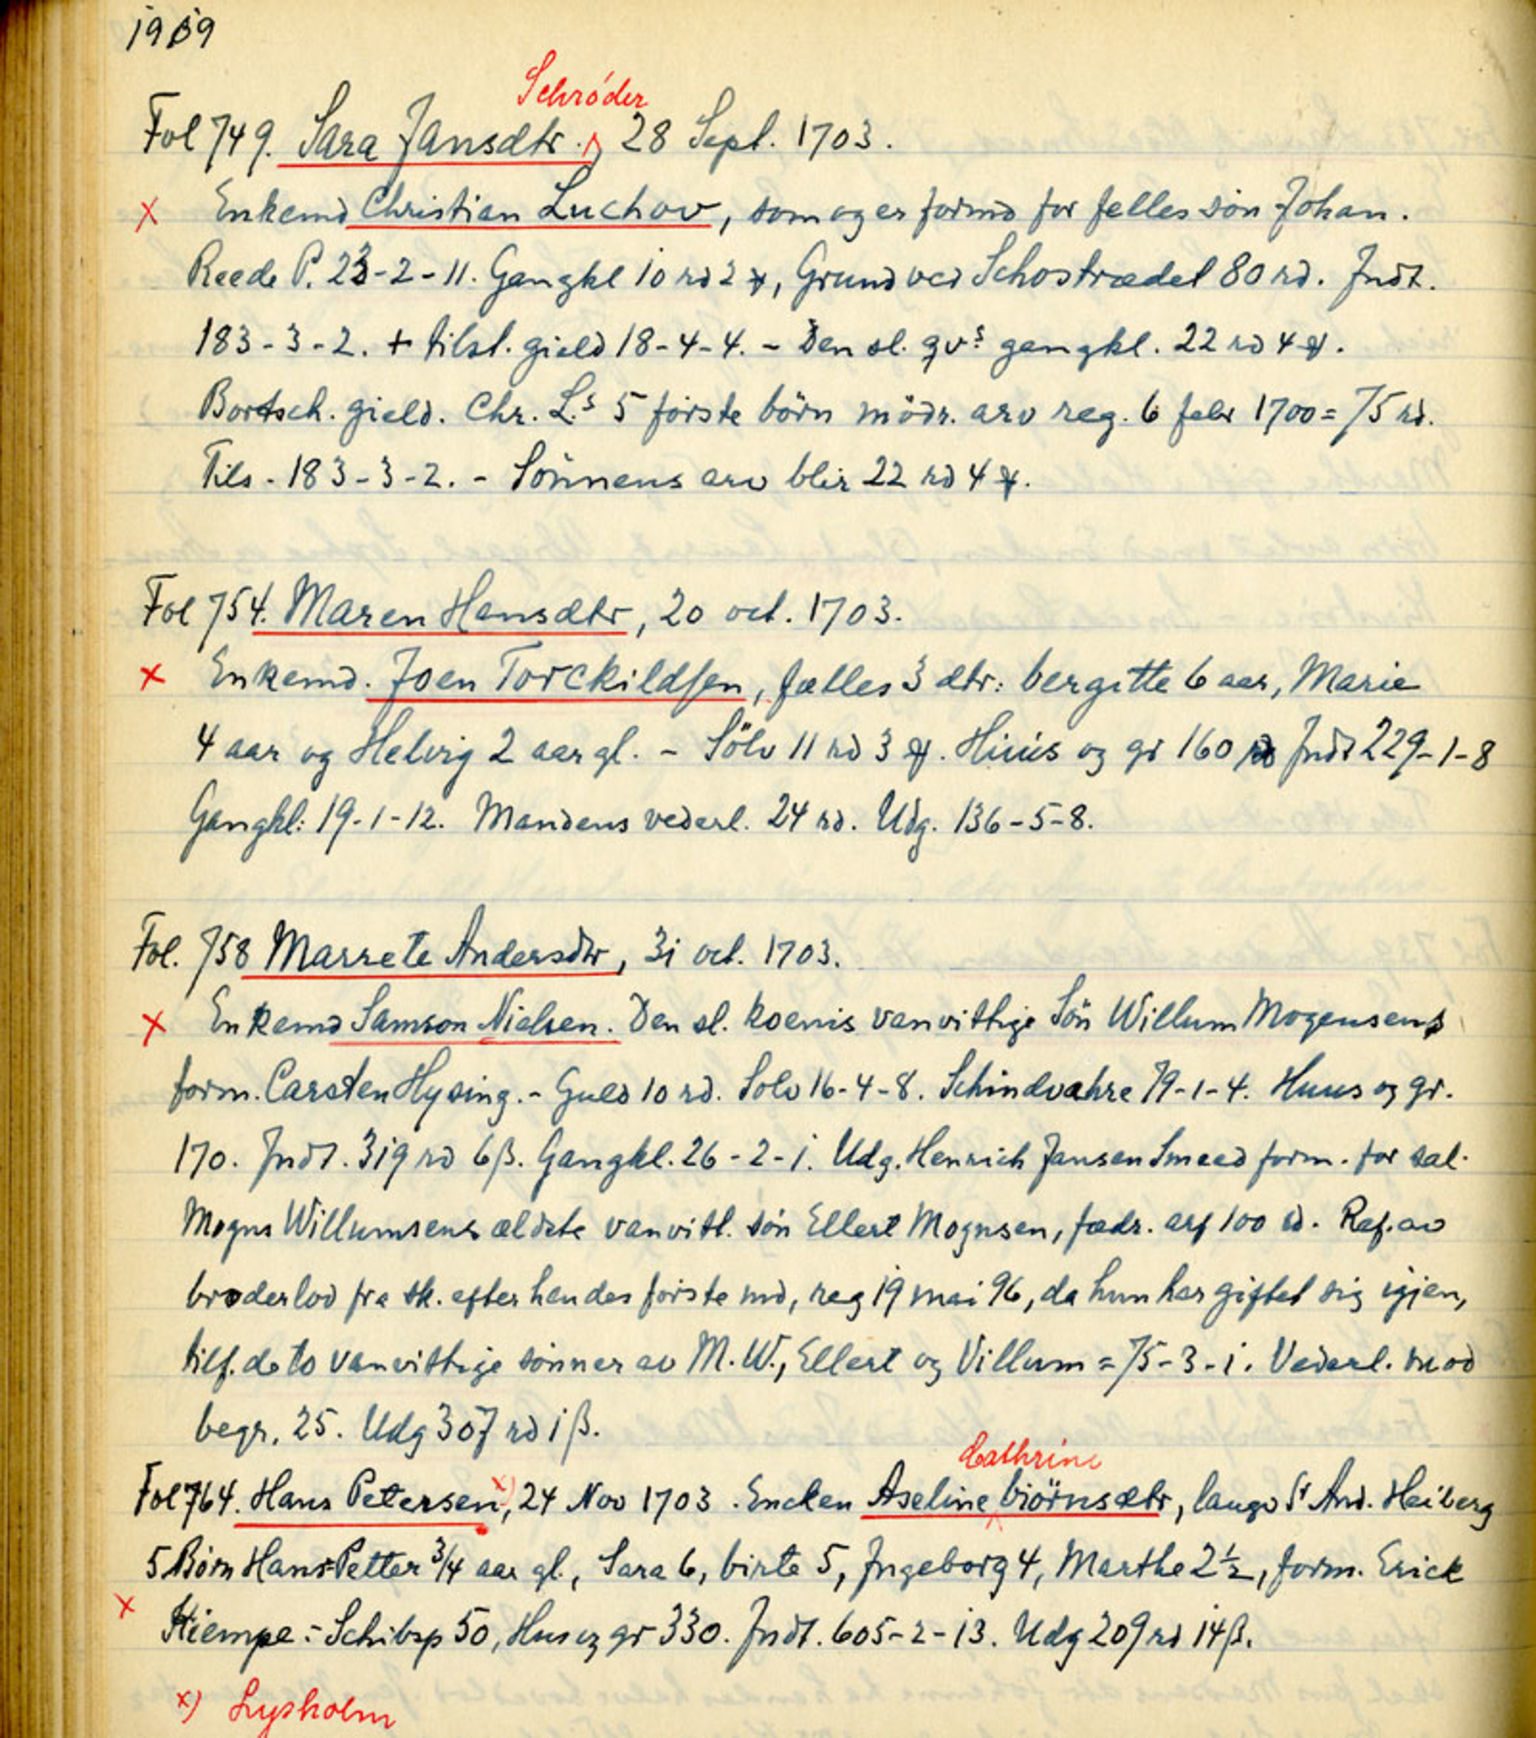 1919
Schröder
Fol 749. Sara Jansdtr. 28 Sept. 1703.
x Enkemd Christian Luchov, som og er formd for felles sön Johan.
Reede P. 23-2-11. Gangkl 10 rd 2 ꝟ, Grund ved Schostrædet 80 rd. Indt.
183-3-2. + tilst. gield 18-4-4. - Den sl. qvs gangkl. 22 rd 4 ꝟ.
Bortsch. gield. Chr. L.s 5 förste börn mödr. arv reg. 6 febr 1700 = 75 rd.
Tils. 183-3-2. - Sönnens arv blir 22 rd 4 ꝟ.
Fol 754. Maren Hansdtr, 20 oct. 1703.
x Enkemd. Joen Torckildsen, fælles 3 dtr: bergitte 6 aar, Marie
4 aar og Helvig 2 aar gl. - Sölv 11 rd 3 ꝟ. Huus og gr 160 rd Indt 229-1-8
Gangkl: 19-1-12. Mandens vederl. 24 rd. Udg. 136-5-8.
Fol. 758 Marrete Andersdtr, 31 oct. 1703.
x Enkemd Samson Nielsen. Den sl. koenis vanvittige Sön Willum Mogensens
form. Carsten Hysing. - Guld 10 rd. Solv 16-4-8. Schindvahre 79-1-4. Huus og gr.
170. Indt. 319 rd 6 β. Gangkl. 26-2-1. Udg. Henrich Jansen Smeed form. for sal.
Mogns Willumsens ældste vanvitl. sön Ellert Mognsen, fædr. arf 100 rd. Raf. av
broderlod fra sk. efter hendes förste md, reg 19 mai 96, da hun har giftet sig igjen,
tilf. de to vanvittige sönner av M. W., Ellert og Villum = 75-3-1. Vederl. mod
begr. 25. Udg 307 rd 1 β.
Cathrine
Fol 764. Hans Petersen x), 24 Nov 1703. Encken Aseline biörnsdtr, laugv Sr And. Heiberg
5 Börn Hans Petter 3/4 aar gl., Sara 6, birte 5, Ingeborg 4, Marthe 2 1/2, form. Erick
x Kiempe - Schibsp 50, Hus og gr 330. Indt. 605-2-13. Udg 209 rd 14 β.
x) Lysholm